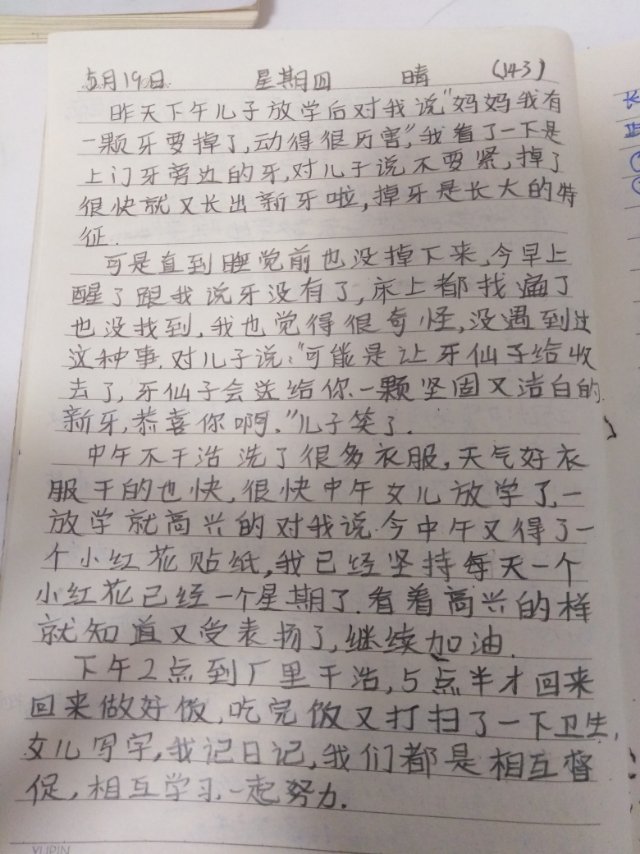 5月19日 星期四 晴 (143)
昨天下午儿子放学后对我说"妈妈我有
一颗牙要掉了,动得很厉害",我看了一下是
上门牙旁边的牙,对儿子说不要紧,掉了
很快就又长出新牙啦,掉牙是长大的特
征.
可是直到睡觉前也没掉下来,今早上
醒了跟我说牙没有了,床上都找遍了
也没找到,我也觉得很奇怪,没遇到过
这种事.对儿子说:"可能是让牙仙子给收
去了,牙仙子会送给你一颗坚固又洁白的
新牙,恭喜你啊."儿子笑了.
中午不干浩洗了很多衣服,天气好衣
服干的也快,很快中午女儿放学了,一
放学就高兴的对我说.今中午又得了一
个小红花贴纸,我已经坚持每天一个
小红花已经一个星期了.看着高兴的样
就知道又受表扬了,继续加油.
下午2点到厂里干浩,5点半才回来
回来做好饭,吃完饭又打扫了一下卫生,
女儿写字,我记日记,我们都是相互督
促,相互学习.一起努力.
YUPIN